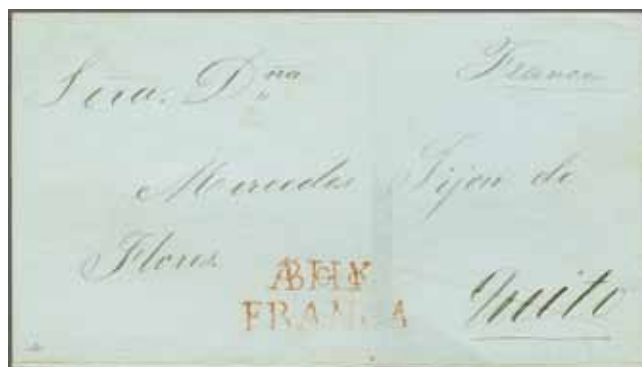 Franca
Sera. Dña
Mercedes Jijon de
Flores
FRANCA
Quito